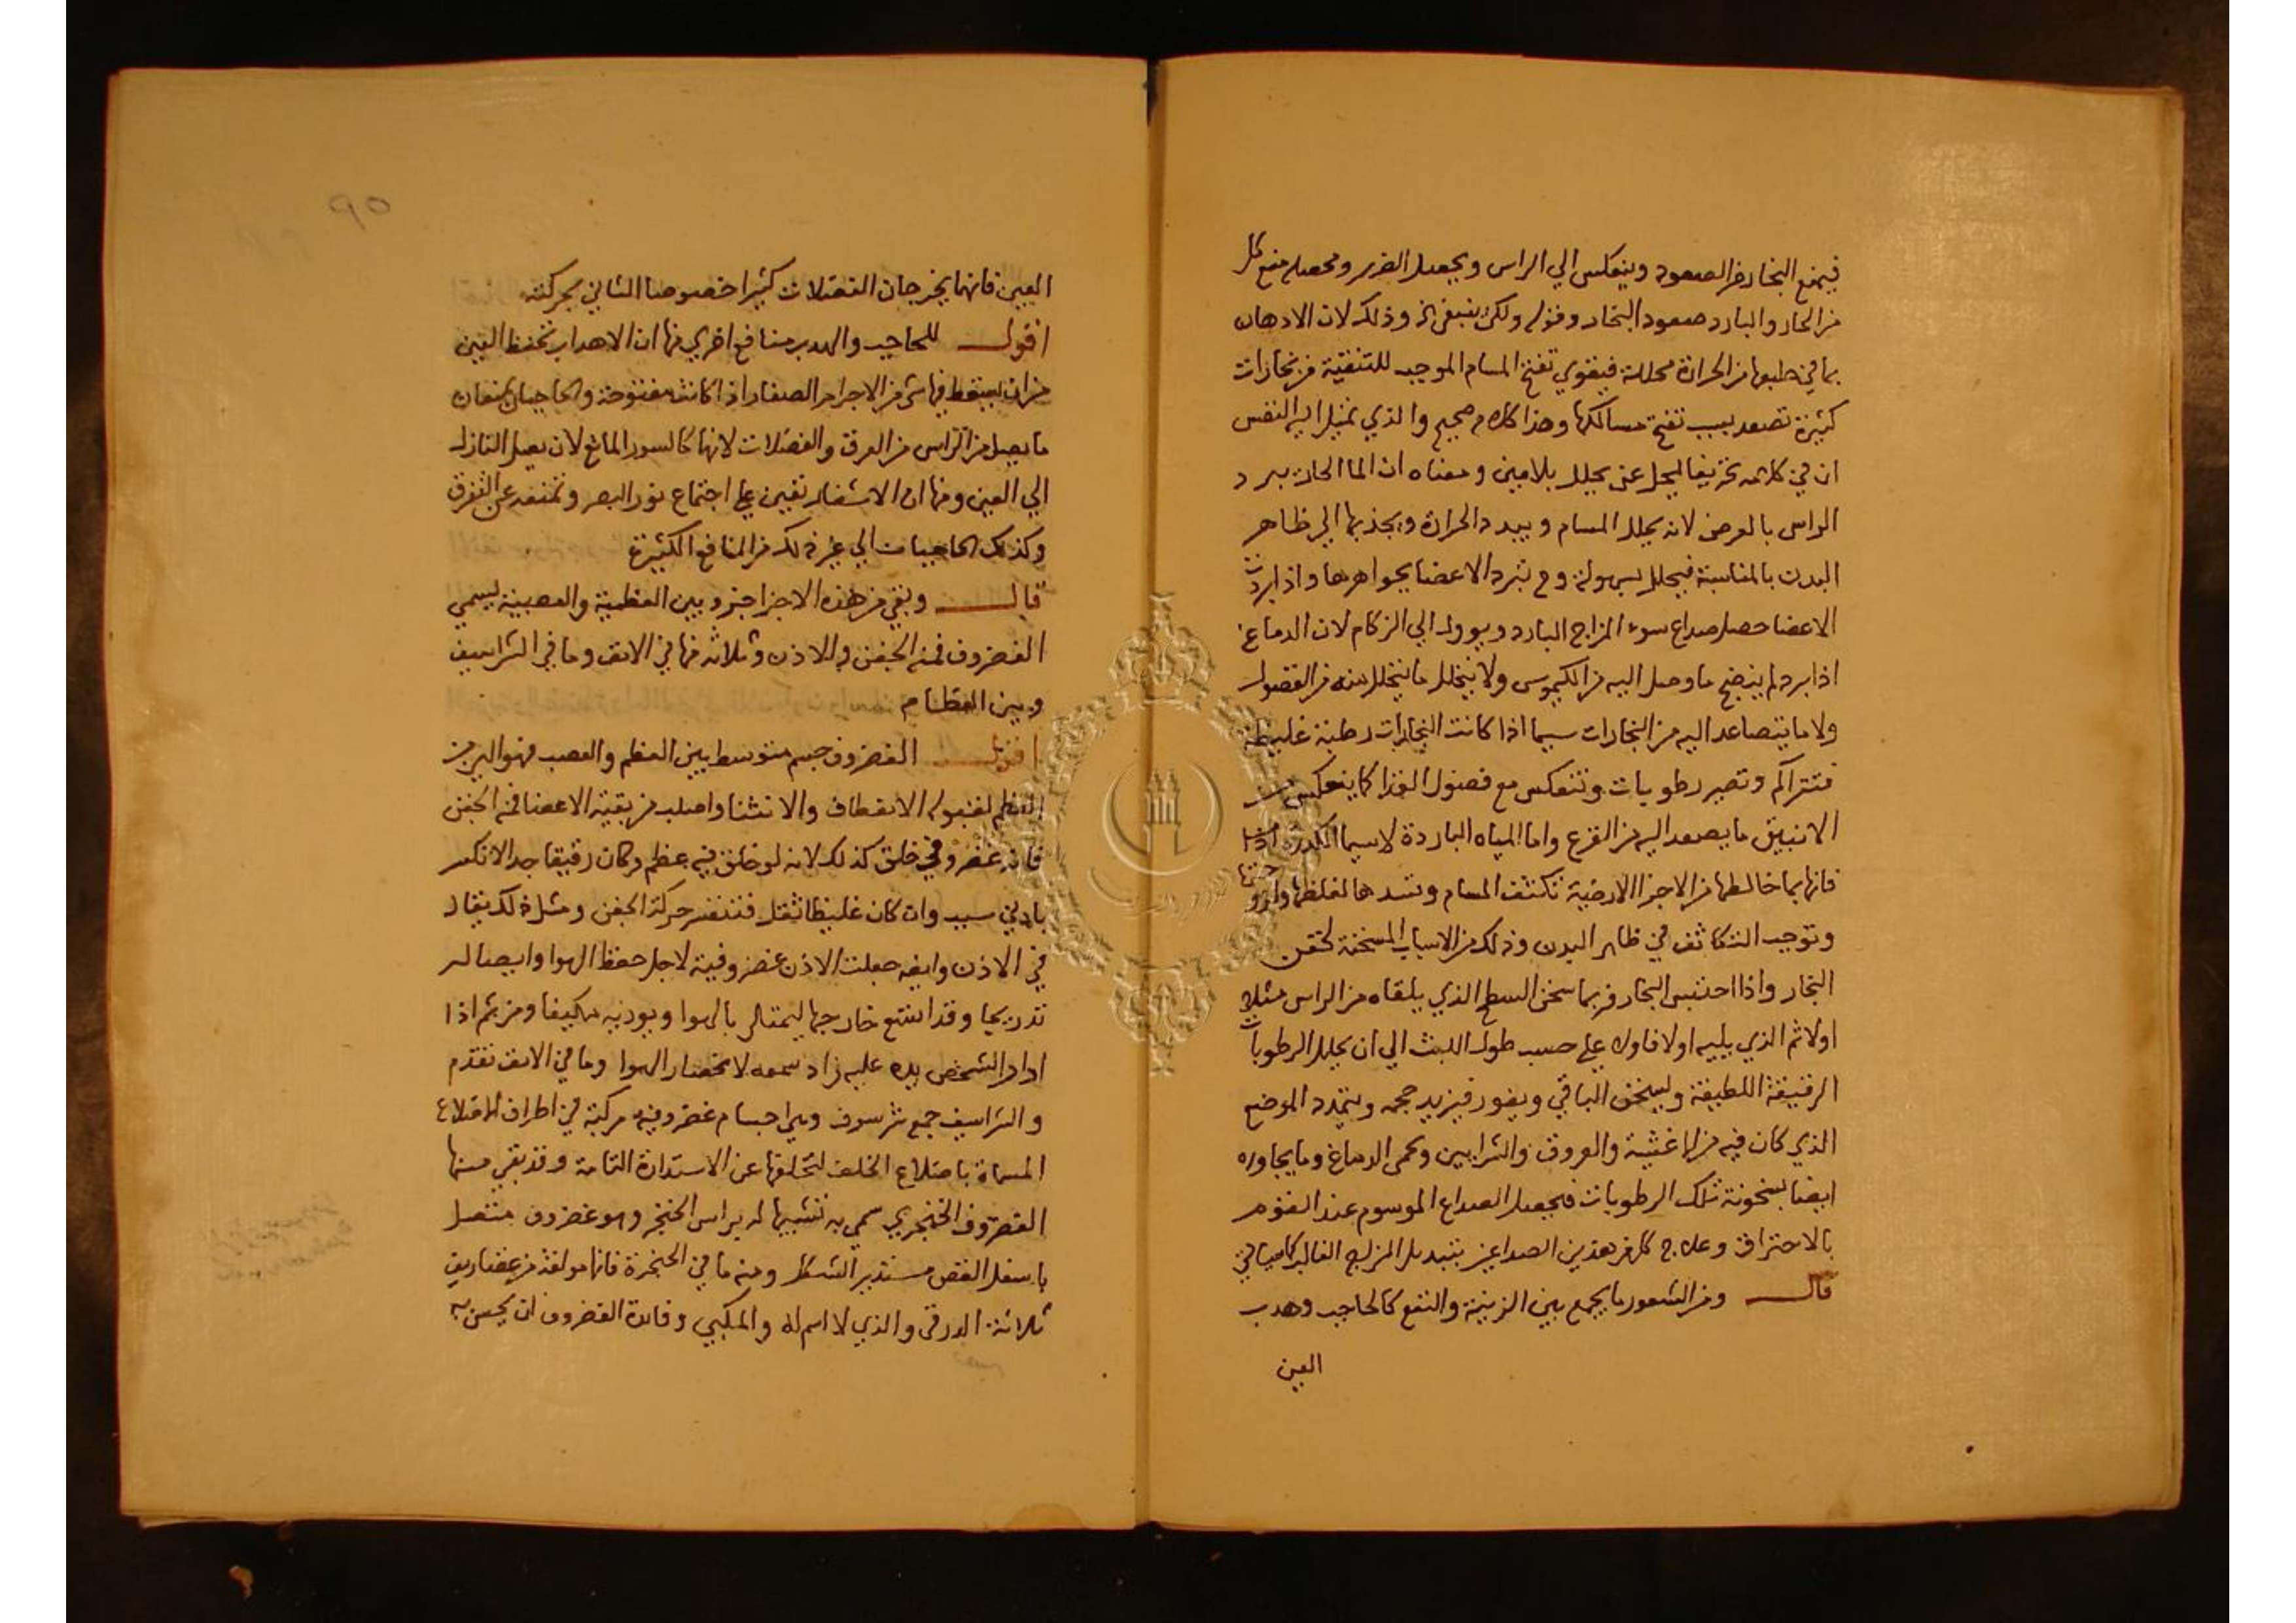 فيمنع البخار من الصعود وينعكس الي الراس ويحصل الضرر ومحصله منع كل
من الحار والبارد صعود البخار وقوله ولكن ينبغي الخ وذلك لان الادهان
بما في طبعها من الحرارة محللة فيقوي تفتح المسام الموجب للتنقية من بخارات
كثيرة تصعد بسبب تفتح مسالكها وهذا كلام صحيح والذي تميل اليه النفس
ان في كلامه تحريفا ليحل عن يحلل بلامين ومعناه ان الما الحار يبرد
الراس بالعرض لانه يحلل المسام ويبدد الحرارة ويجذبها الي ظاهر
البدن بالمناسبة فيحلل بسهولة وح تبرد الاعضا بجواهرها واذا بردت
الاعضا حصل صداع سوء المزاج البارد ويوول الي الزكام لان الدماغ
اذا برد لم ينضج ما وصل اليه من الكيموس ولا يتحلل ما يتحلل منه من الفضول
ولا ما يتصاعد اليه من البخارات سيما اذا كانت البخارات رطبة غليظة
فتتراكم وتصير رطوبات وتنعكس مع فضول الغذا كما ينعكس من
الانبيق ما يصعد اليه من القرع واما المياه الباردة لاسيما الكدرة
فانها بما خالطها من الاجزا الارضية تكثف المسام وتسدها لغلظها
وتوجب التكاثف في ظاهر البدن وذلك من الاسباب المسخنة لحقن
البخار واذا احتبس البخار فربما سخن السطح الذي يلقاه من الراس مثلا
اولا ثم الذي يليه اولا فاولا علي حسب طول اللبث الي ان يحلل الرطوبات
الرقيقة اللطيفة ويسخن الباقي ويفور فيزيد حجمه ويتمدد الموضع
الذي كان فيه من الاغشية والعروق والشرايين وتحمي الدماغ وما يجاوره
ايضا بسخونة تلك الرطوبات فيحصل الصداع الموسوم عند القوم
بالاحتراق وعلاج كل من هذين الصداعين بتبديل المزاج الغالب كما سياتي
قال ومن الشعور ما يجمع بين الزينة والنفع كالحاجب وهدب
العين
٩٥
العين فانهما يخرجان الفضلات كثيرا خصوصا الثاني بحركته
اقول للحاجب والهدب منافع اخري منها ان الاهداب تحفظ العين
من ان يسقط فيها شي من الاجرام الصغار اذا كانت مفتوحة والحاجبان يمنعان
ما يصل من الراس من العرق والفضلات لانها كالسور المانع لان يصل النازل
الي العين ومنها ان الاشفار تعين علي اجتماع نور البصر وتمنعه عن التفرق
وكذلك الحاجبان الي غير ذلك من المنافع الكثيرة
قال وبقي من هذه الاجزا جزو بين العظمية والعصبية ليسمي
الغضروف فمنه الجفن والاذن وثلاثه منها في الانف وما في الشراسيف
وبين العظام
اقول الغضروف جسم متوسط بين العظم والعصب فهو الين من
العظم لقبوله الانعطاف والانثنا واصلب من بقية الاعضا فمنه الجفن
فانه غضروفي خلق كذلك لانه لو خلق فيه عظم وكان رقيقا جدا لانكسر
بادني سبب وان كان غليظا ثقل فتتعسر حركة الجفن ومثل ذلك يقال
في الاذن وايضه جعلت الاذن غضروفية لاجل حفظ الهوا وايصاله
تدريجا وقد اتسع خارجها ليمتلي بالهوا ويوديه مكيفا ومن ثم اذا
ادار الشخص يده عليه زاد سمعه لانحصار الهوا وما في الانف تقدم
والشراسيف جمع شرسوف وهي اجسام غضروفية مركبة في اطراف الاضلاع
المسماة باضلاع الخلف لتخلفها عن الاستدارة التامة وقد بقي منها
الغضروف الخنجري سمي به تشبيها له براس الخنجر وهو غضروف متصل
باسفل القص مستدير الشكل ومنه ما في الحنجرة فانها مولفة من غضاريف
ثلاثة الدرقي والذي لا اسم له والمكبي وفائدة الغضروف ان يحسن به